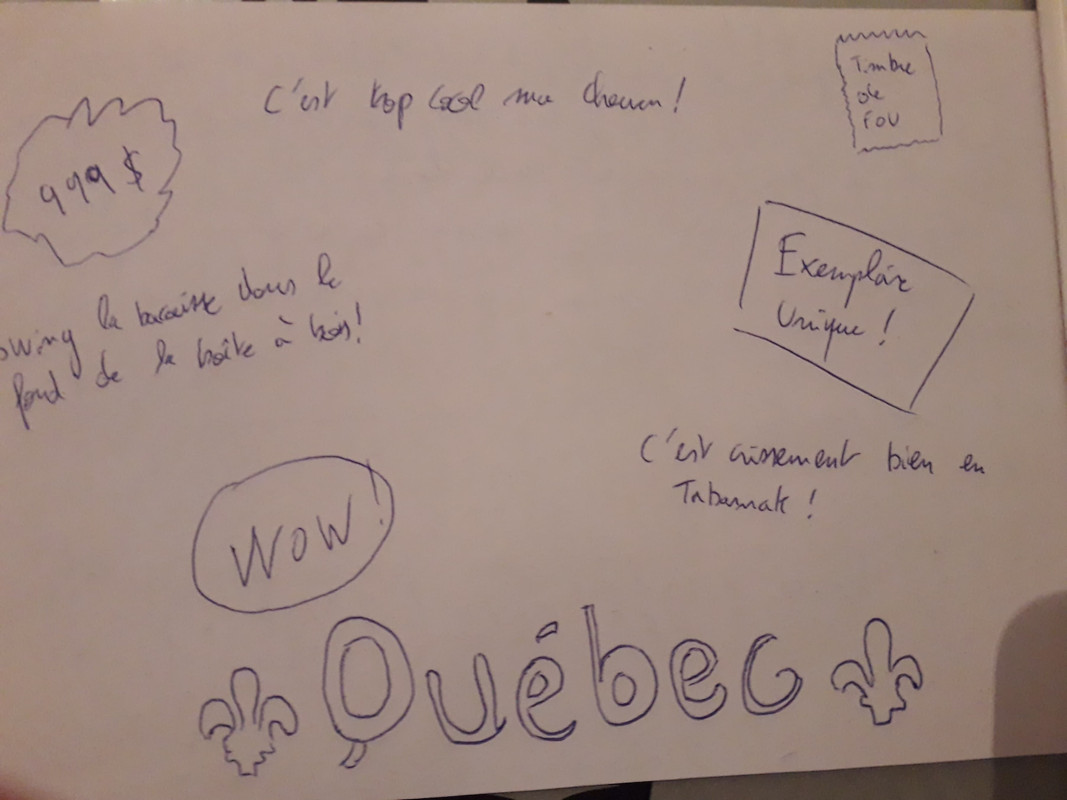 C'est trop cool ma
Timbre
de
fou
999 $
Exemplaire
Unique !
swing la bacaisse dans le
fond de la boîte à bois!
C'est crissement bien en
Tabarnak !
WOW !
Québec